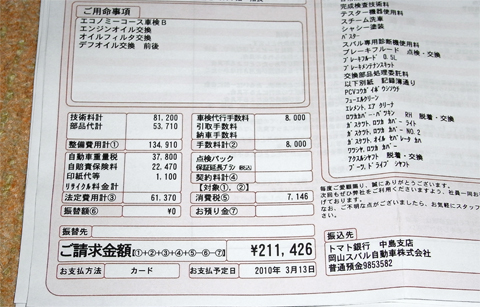 ご用命事項
エコノミーコース車検B
エンジンオイル交換
オイルフィルタ交換
デフオイル交換 前後
技術料計 81,200
部品代計 53,710
整備費用計① 134,910
自動車重量税 37,800
自賠責保険料 22,470
印紙代等 1,100
リサイクル料金
法定費用計③ 61,370
振替額⑥ ¥0
車検代行手数料 8,000
引取手数料
納車手数料
手数料計② 8,000
点検パック
保証延長プラン 税込
契約料計④
【対象①、②】
消費税⑤ 7,146
お預り金⑦
振替先
ご請求金額[①+②+③+④+⑤-⑥-⑦] ¥211,426
お支払方法 カード お支払予定日 2010年 3月13日
完成検査技術料
テスター機器使用料
スチーム洗車
シャシー塗装
バスター
スバル専用診断機使用料
ブレーキフルード 点検・交換
ブレーキフルード 0.5L
ブレーキメンテナンスキット
交換部品処理委託料
以下別紙 記録簿通り
PCVコウカイボウシソウチ
フューエルクリーン
エレメント,エア クリーナ
ロツカカバー・パツキン RH 脱着・交換
ガスケツト,ロツカ カバー ライト
ガスケツト,ロツカ カバー NO.2
ガスケツト,オイル セパレータ カ
ワツシヤ,ロツカ カバー
アクスルシヤフト 脱着・交換
ブーツ,ドライブ シヤフト
毎度ご愛顧賜り、誠にありがとうございます。
なお、ご不明な点がございましたら、お気軽にスタッフ
振込先
トマト銀行 中島支店
岡山スバル自動車株式会社
普通預金9853582